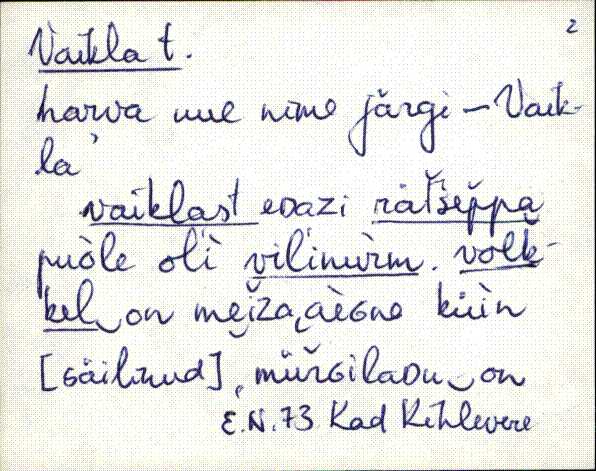 2
Vaikla t.
harva uue nime järgi – Vaik-
la
vaiklast eDazi rätšeppa
puòle oli vilinùrm. volk-
kel on mejža,aèGne küìn
[Gäilinud],
on
E.N. 73 Kad Kihlevere